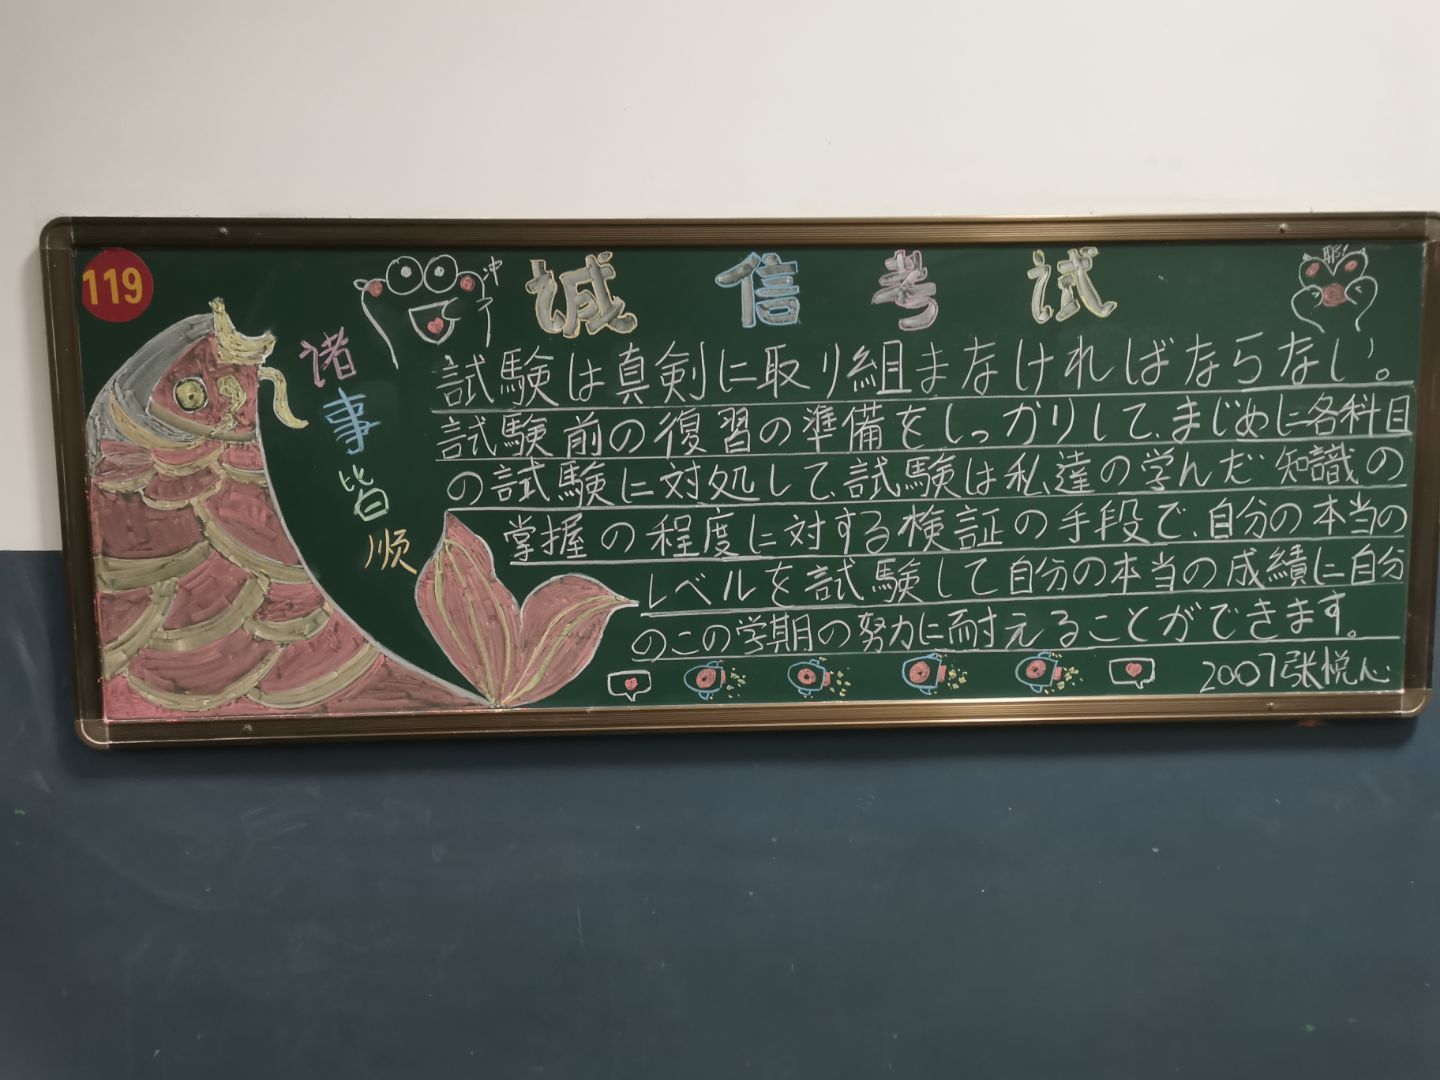 119
诚信考试
冲
耶!
诸事皆顺
試験は真剣に取り組まなければならない。
試験前の復習の準備をしっかりして、まじめに各科目
の試験に対処して、試験は私達の学んだ知識の
掌握の程度に対する検証の手段で、自分の本当の
レベルを試験して自分の本当の成績に自分
のこの学期の努力に耐えることができます。
2007张悦心